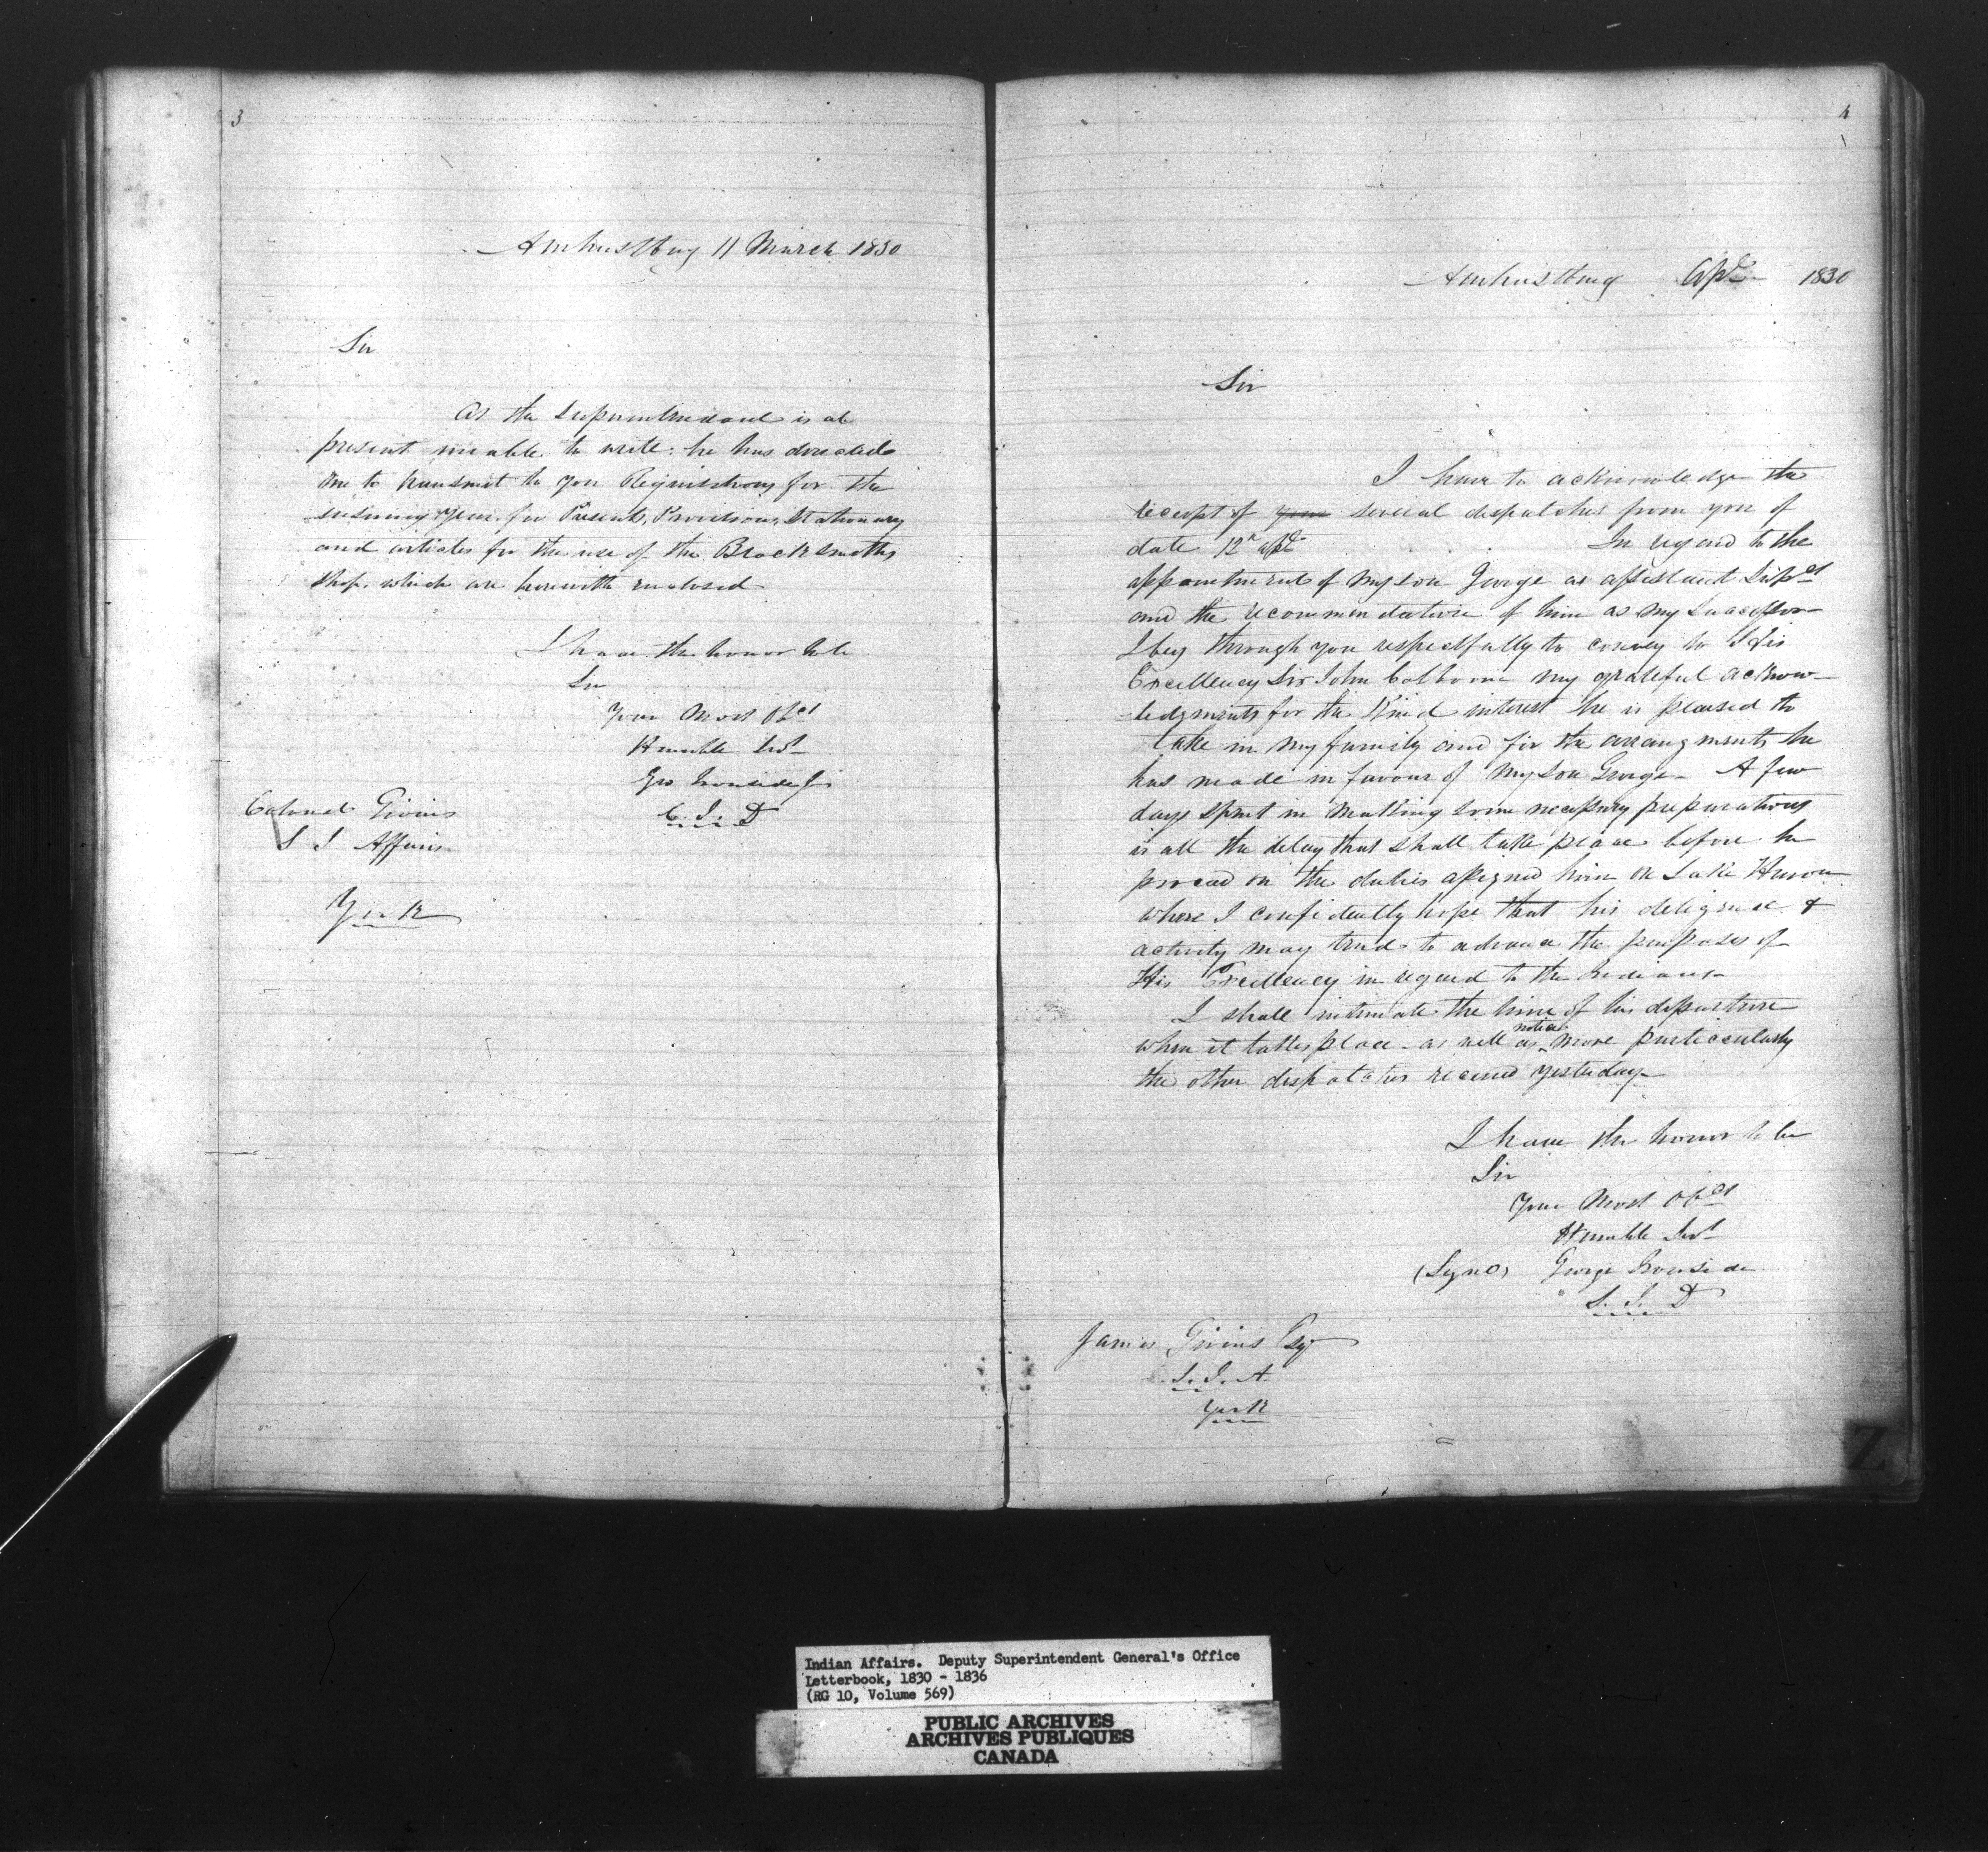 3
Amherstburg 11 March 1830
Sir
As the Superintendent is at
present unable to write: he has directed
me to transmit to you Requisitions for the
ensuing year for Presents, Provisions, Stationary
and articles for the use of the Blacksmiths
shop, which are herewith enclosed
I have the honor to be
Sir
Your Most Obt
Humble Sert
Geo Ironside Jr
C. I. D
Colonel Givins
S I Affairs
York
4
Amherstburg Apl 1830
Sir
I have to acknowledge the
receipt of your several dispatches from you of
date 12th apl In regard to the
appointment of my son George as assistant Supt
and the recommendation of him as my Successor
I beg through you respectfully to convey to His
Excellency Sir John Colborne my grateful acknow-
-ledgments for the kind interest he is pleased to
take in my family and for the arrangments he
has made in favour of my son George - A few
days spent in making some necessary preparations
is all the delay that shall take place before he
proceed on the duties assigned him on Lake Huron
where I confidently hope that his deligence &
activity may tend to advance the purposes of
His Excellency in regard to the Indians -
I shall intimate the time of his departure
when it takes place - as well as notice more particularly
the other dispatches received yesterday -
I have the honor to be
Sir
Your Most Obt
Humble Sert
(Signd) George Ironside
S. I. D
James Givins Esq
S. I. A.
York
Z
Indian Affairs. Deputy Superintendent General's Office
Letterbook, 1830 - 1836
(RG 10, Volume 569)
PUBLIC ARCHIVES
ARCHIVES PUBLIQUES
CANADA